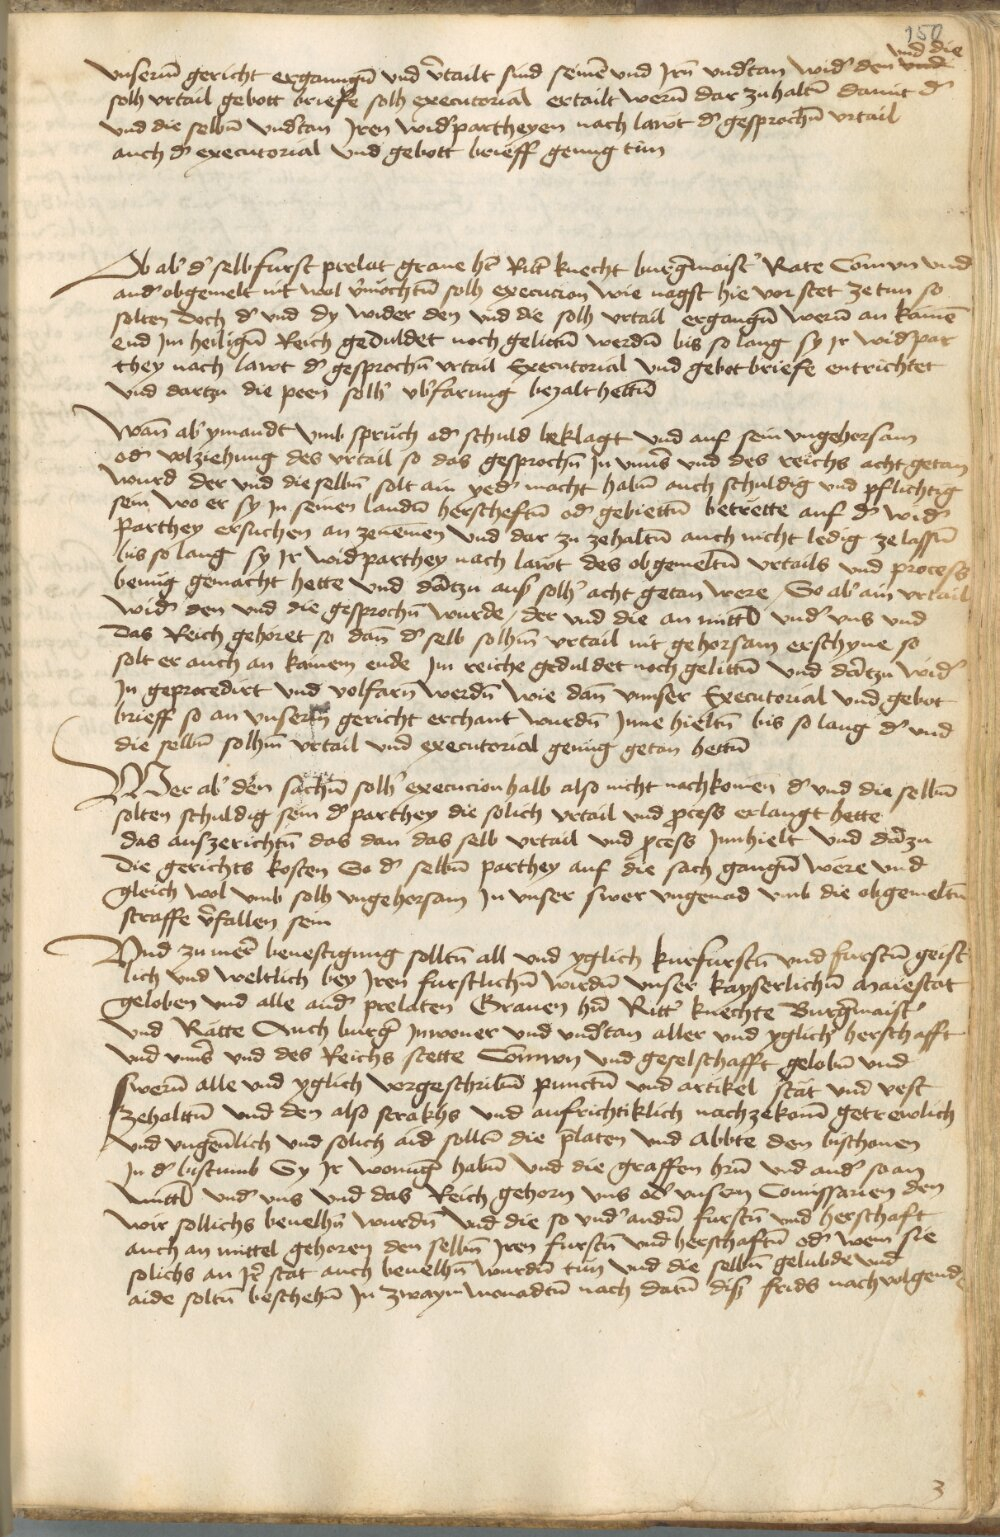 150
und die
unserm̄ gericht ergangn̄ und v̄tailt sind seinē und Jrn̄ und'tan wid' den und
solh vrtail gebott briefe solh executorial ertailt wern̄ dar zuhaltn̄ damit d'
und die selbn̄ und'tan Jren wid'partheyen nach lawt d' gesprochn̄ vrtail
auch d' executorial und gebott brieff genug tun
Ob ab' d' selb furst prelat graue h'r Ritt' knecht burg'maist' Rate Comvn und
and' obgemelt nit wol v'mochtn̄ solh execucion wie nagst hie vor stet ze tun so
solten doch d' und dy wider den und die solh vrtail ergangn̄ wern̄ an kainē
end Jm heilign̄ Reich geduldet noch gelittn̄ werdn̄ bis so lang sy Jr wid'par
they nach lawt d' gesprochn̄ vrtail Executorial und gebotbriefe entrichtet
und dartzu die peen solh' vb'farung bezalt hettn̄
Wan̄ ab' ymandt vmb spruch od' schuld beklagt und auf sein vngehorsam
od' volziehung des vrtail so das gesprochn̄ Jn vnns' und des reichs acht getan
wurd der und die selbn̄ solt ain yed' macht habn̄ auch schuldig und pflichtig
sein wo er sy Jn seinen landn̄ herscheftn̄ od' gebiettn̄ betrette auf d' wid'
parthey ersuchen an zenemen und dar zu zehaltn̄ auch nicht ledig ze lassn̄
bis so lang sy Jr wid'parthey nach lawt des obgemeltn̄ vrtails und process
benug gemacht hette und dartzu aus solh' acht getan were / So ab' ain vrtail
wid' den und die gesprochn̄ wurde / der und die an mittl und' vns und
das Reich gehoret so dan̄ d' selb solhm̄ vrtail nit gehorsam erschyne so
solt er auch an kainem ende Jm reiche geduldet noch gelittn̄ und dartzu wid'
Jn geprocedirt und volfarn̄ werdn̄ wie dan̄ vnnser Executorial und gebot
brieff so an vnserm̄ gericht erchant wurdn̄ Jnne hieltn̄ bis so lang d' und
die selbn̄ solhm̄ vrtail und executorial genug getan hettn̄
Wer ab' den sachn̄ solh' execucion halb also nicht nachkomen d' und die selbn̄
solten schuldig sein d' parthey die solich vrtail und process erlangt hette
das auszerichtn̄ das dan das selb vrtail und process Jnnhielt und dartzu
die gerichts kosten So d' selbn̄ parthey auf die sach gangn̄ were und
gleich wol vmb solh vngehorsam Jn vnser swer vngenad vmb die obgemeltn̄
straffe v'fallen sein
Und zu mer' beuestigung solltn̄ all und yglich kurfurstn̄ und furstn̄ geist
lich und weltlich bey Jren furstlichn̄ wirdn̄ vnser kayserlichn̄ Maiestat
geloben und alle and' prelaten Grauen h'n Ritt' knechte Burg'maist'
und Rātte Auch burg' Jnwoner und und'tan aller und yglich' herschafft
und vnns' und des Reichs stette Comvn und geselschafft gelobn̄ und
swern̄ alle und yglich vorgeschribn̄ punctn̄ und artikel stāt und vest
zehaltn̄ und den also strakhs und aufrichtiklich nachzekomē getrewlich
und vngeu'lich und solich aid solltn̄ die p'laten und Abbte den bischouen
Jn d' bistumb Sy Jr wonung habn̄ und die graffen hrn̄ und and' so an
mittl und' vns und das Reich gehorn vns od' vnsern Comissarien den
wir sollichs beuelhn̄ wurdn̄ und die so und' andn̄ furstn̄ und herschaft
auch an mittel gehoren den selbn̄ Jren furstn̄ und herschaftn̄ od' wem sie
solichs an Jr' stat auch beuelhn̄ wurdn̄ tun und die selbn̄ gelubde und
aide soltn̄ beschehn̄ Jn zwayn monadtn̄ nach datn̄ diss frids nachvolgende
3